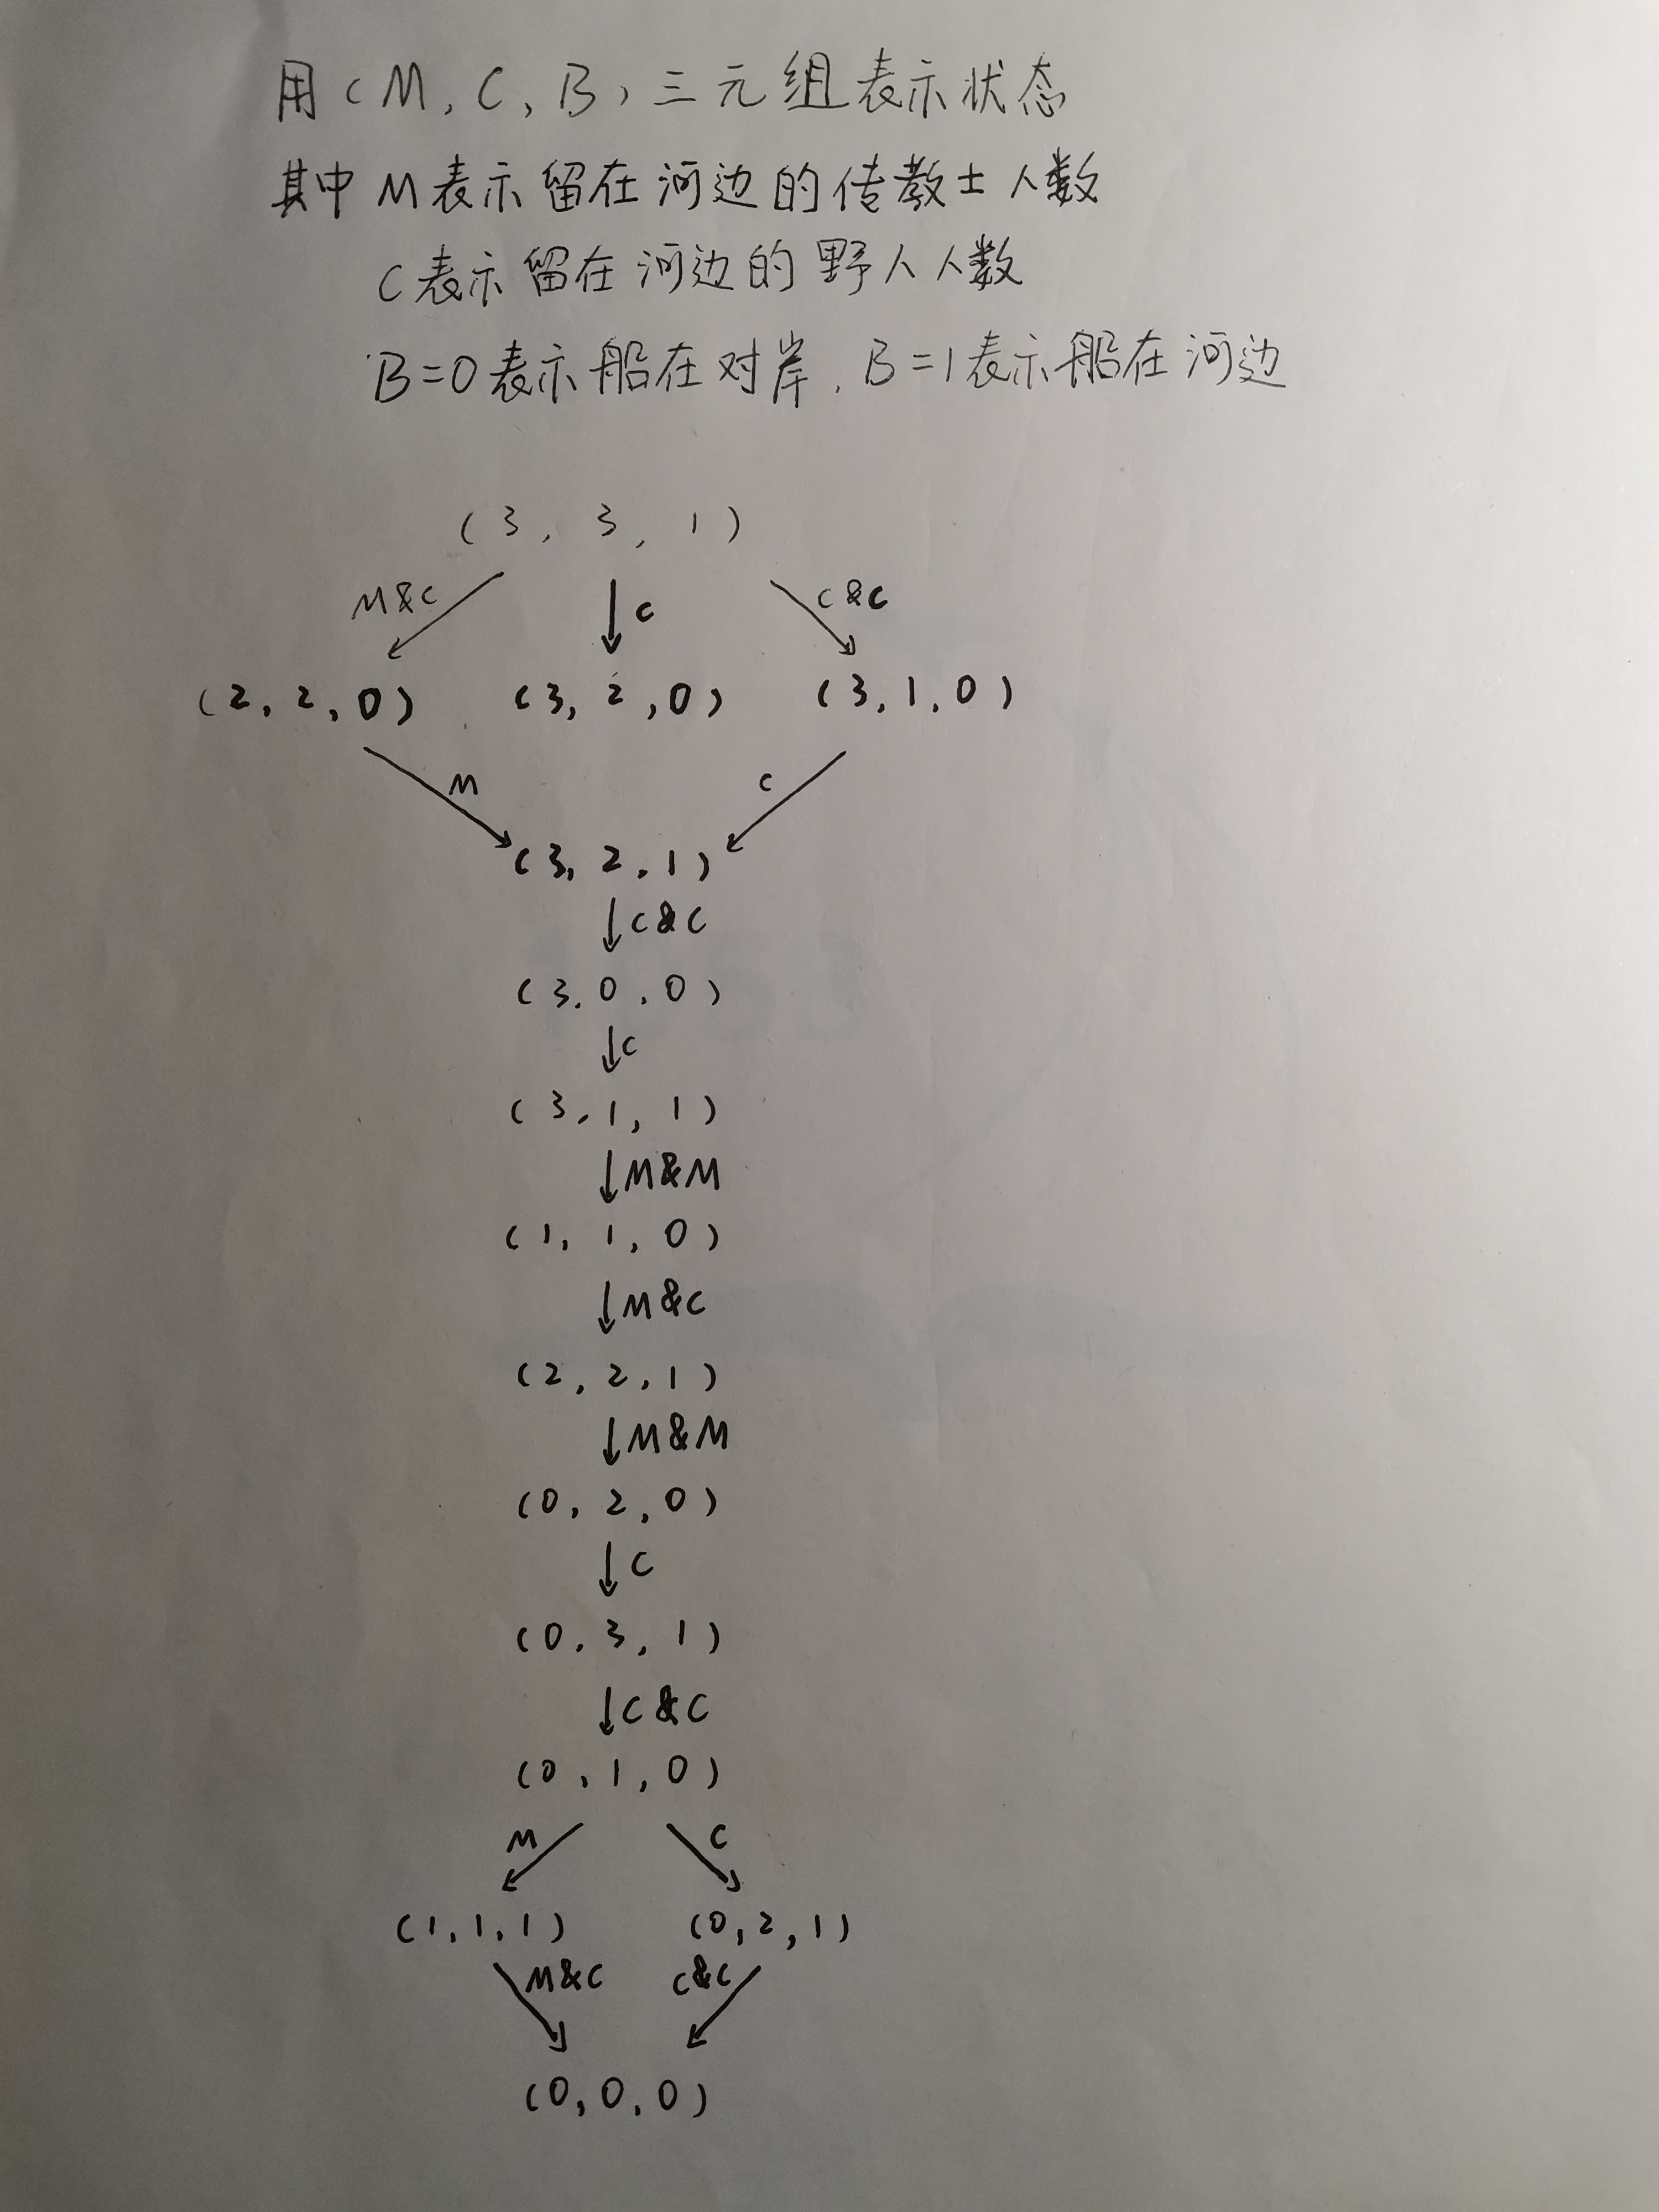 用(M,C,B)三元组表示状态
其中M表示留在河边的传教士人数
C表示留在河边的野人人数
B=0表示船在对岸,B=1表示船在河边
(3,3,1)
M&C C C&C
(2,2,0) (3,2,0) (3,1,0)
M C
(3,2,1)
C&C
(3,0,0)
C
(3,1,1)
M&M
(1,1,0)
M&C
(2,2,1)
M&M
(0,2,0)
C
(0,3,1)
C&C
(0,1,0)
M C
(1,1,1) (0,2,1)
M&C C&C
(0,0,0)